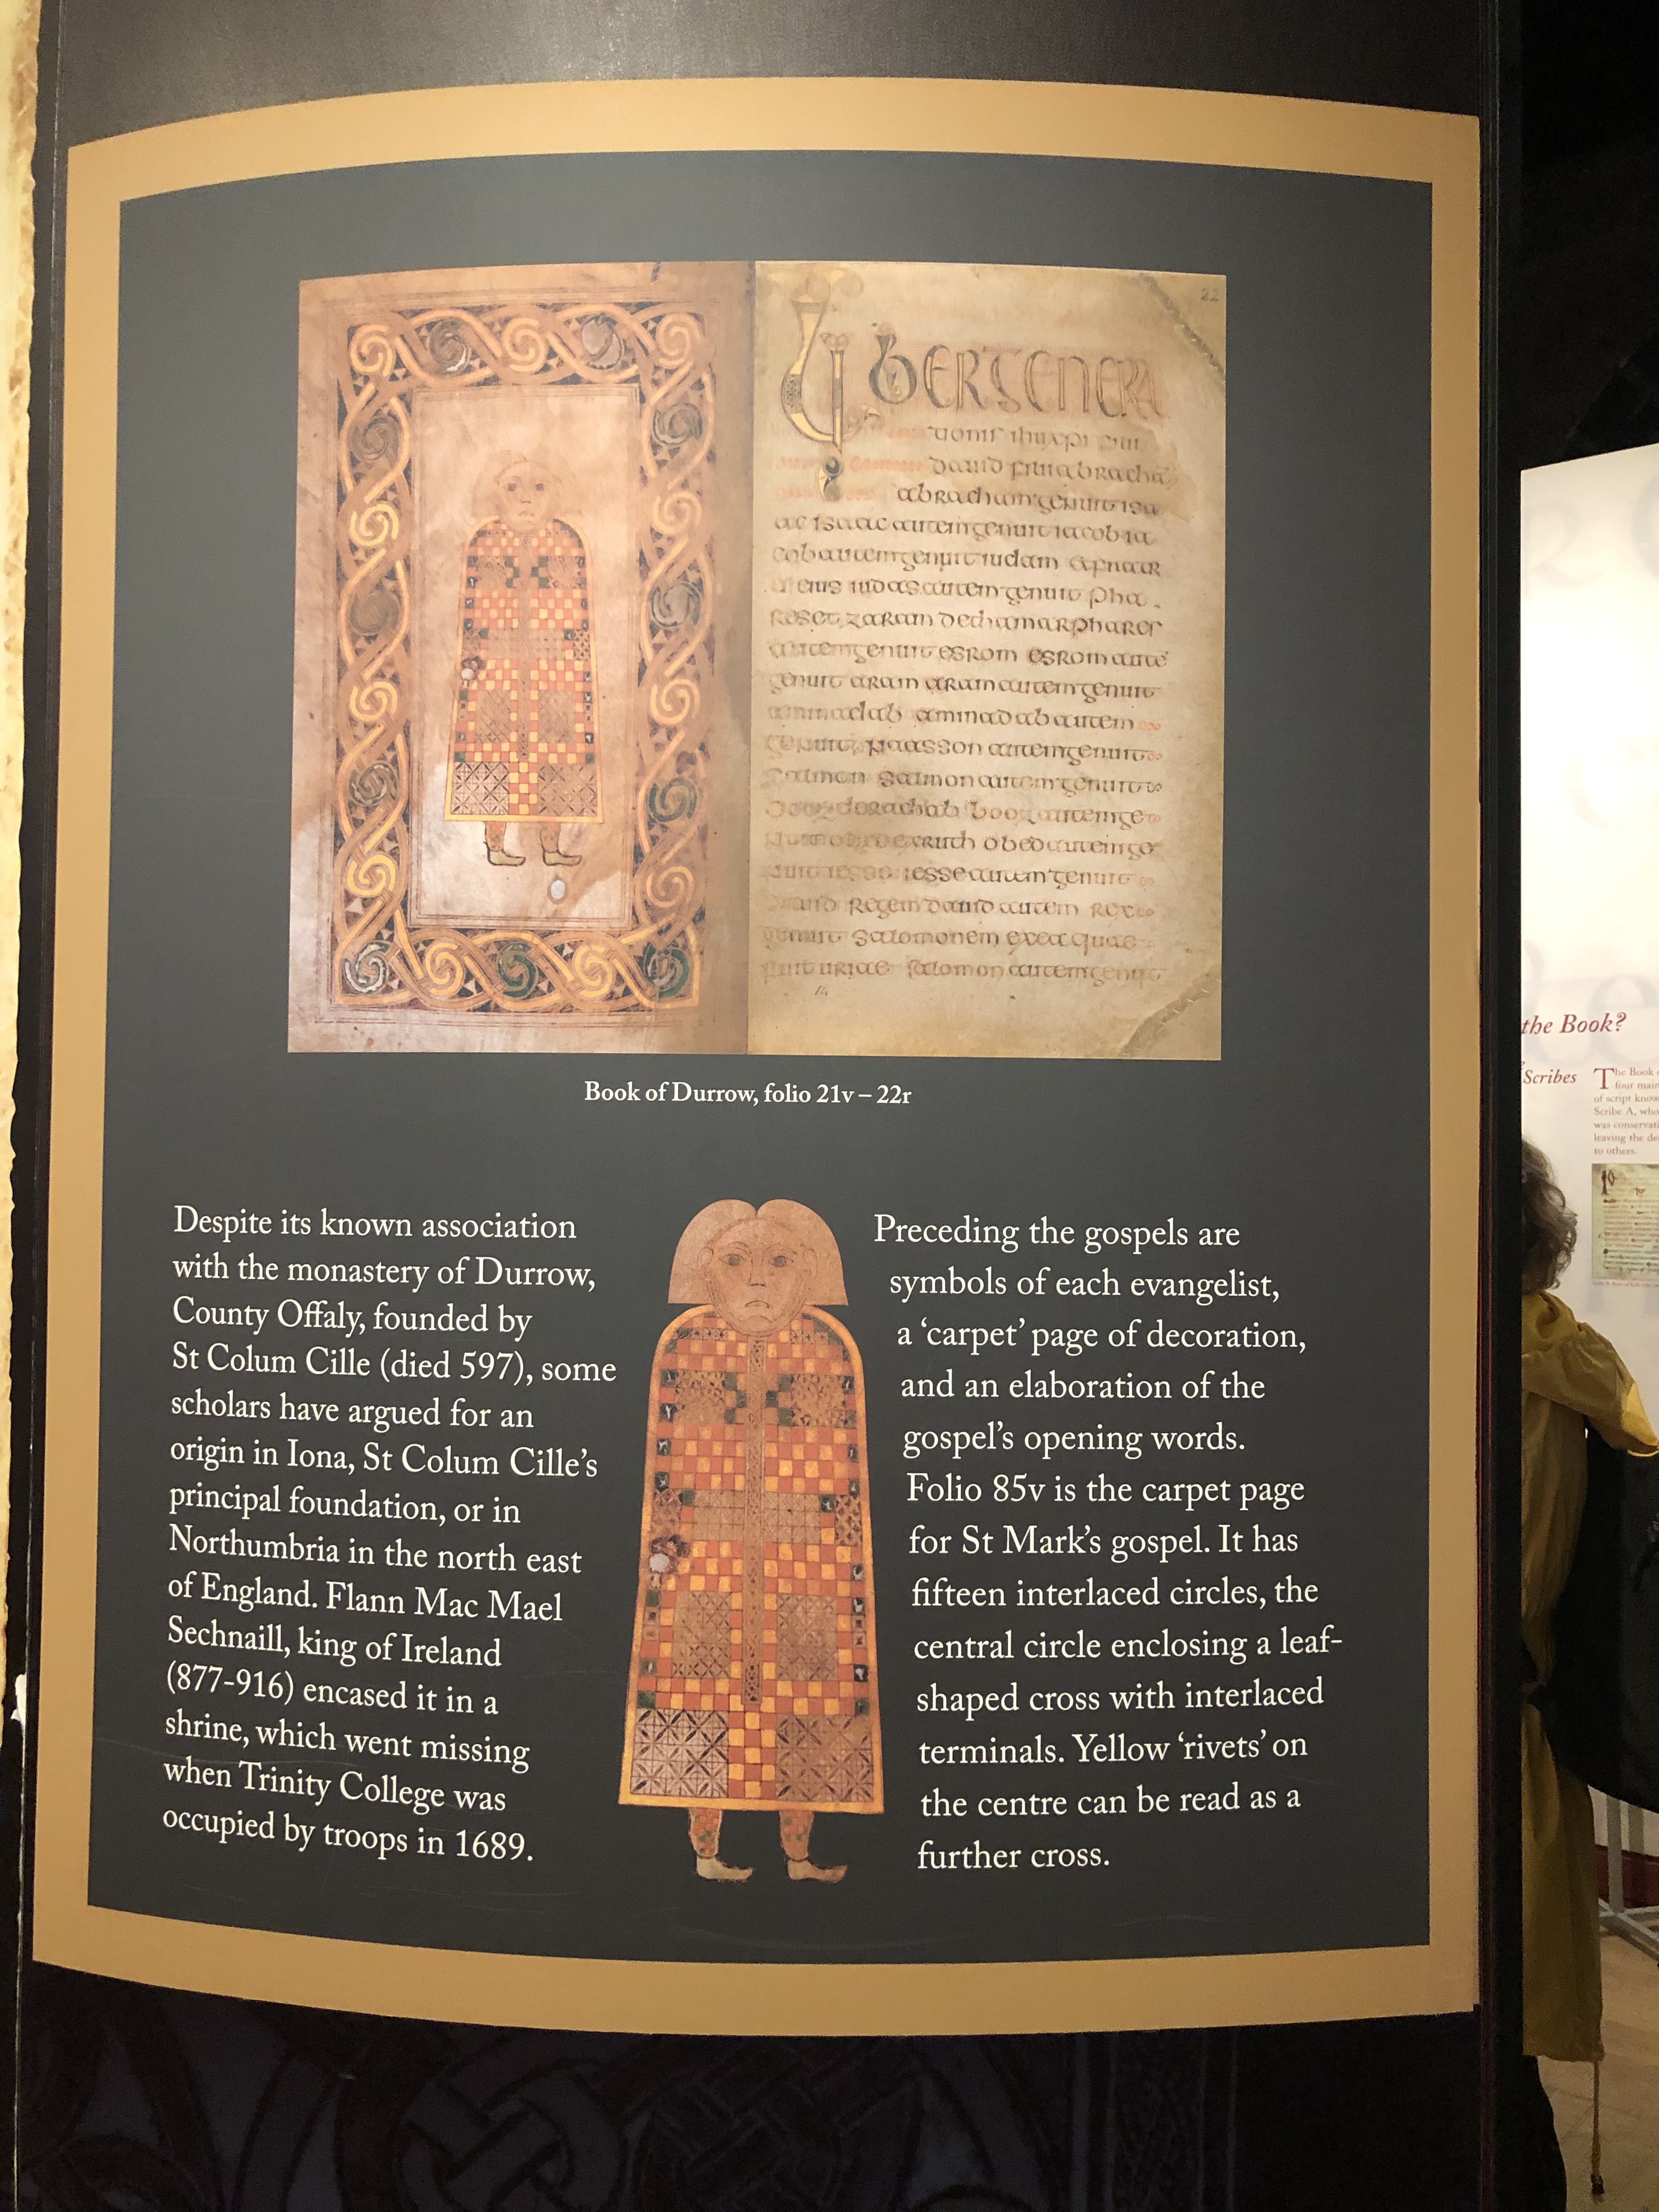 22
LIBER GENERA
tionis ihu xpi filii
david filii abracha
abracham genuit isa
ac isaac autem genuit iacob ia
cob autem genuit iudam
eius iudas autem genuit pha
res et zaram de thamar phares
autem genuit esrom esrom aute
genuit aram aram autem genuit
aminadab aminadab autem
genuit naasson autem genuit
salmon salmon autem genuit
booz de rachab booz autem ge
ex ruth obed autem ge
iesse autem genuit
david regem david autem rex
genuit salomonem ex ea quae
fuit uriae salomon autem genuit
Book of Durrow, folio 21v – 22r
Despite its known association
with the monastery of Durrow,
County Offaly, founded by
St Colum Cille (died 597), some
scholars have argued for an
origin in Iona, St Colum Cille’s
principal foundation, or in
Northumbria in the north east
of England. Flann Mac Mael
Sechnaill, king of Ireland
(877-916) encased it in a
shrine, which went missing
when Trinity College was
occupied by troops in 1689.
Preceding the gospels are
symbols of each evangelist,
a ‘carpet’ page of decoration,
and an elaboration of the
gospel’s opening words.
Folio 85v is the carpet page
for St Mark’s gospel. It has
fifteen interlaced circles, the
central circle enclosing a leaf-
shaped cross with interlaced
terminals. Yellow ‘rivets’ on
the centre can be read as a
further cross.
the Book?
Scribes
The Book
four main
of script know
Scribe A, who
was conservati
leaving the de
to others.